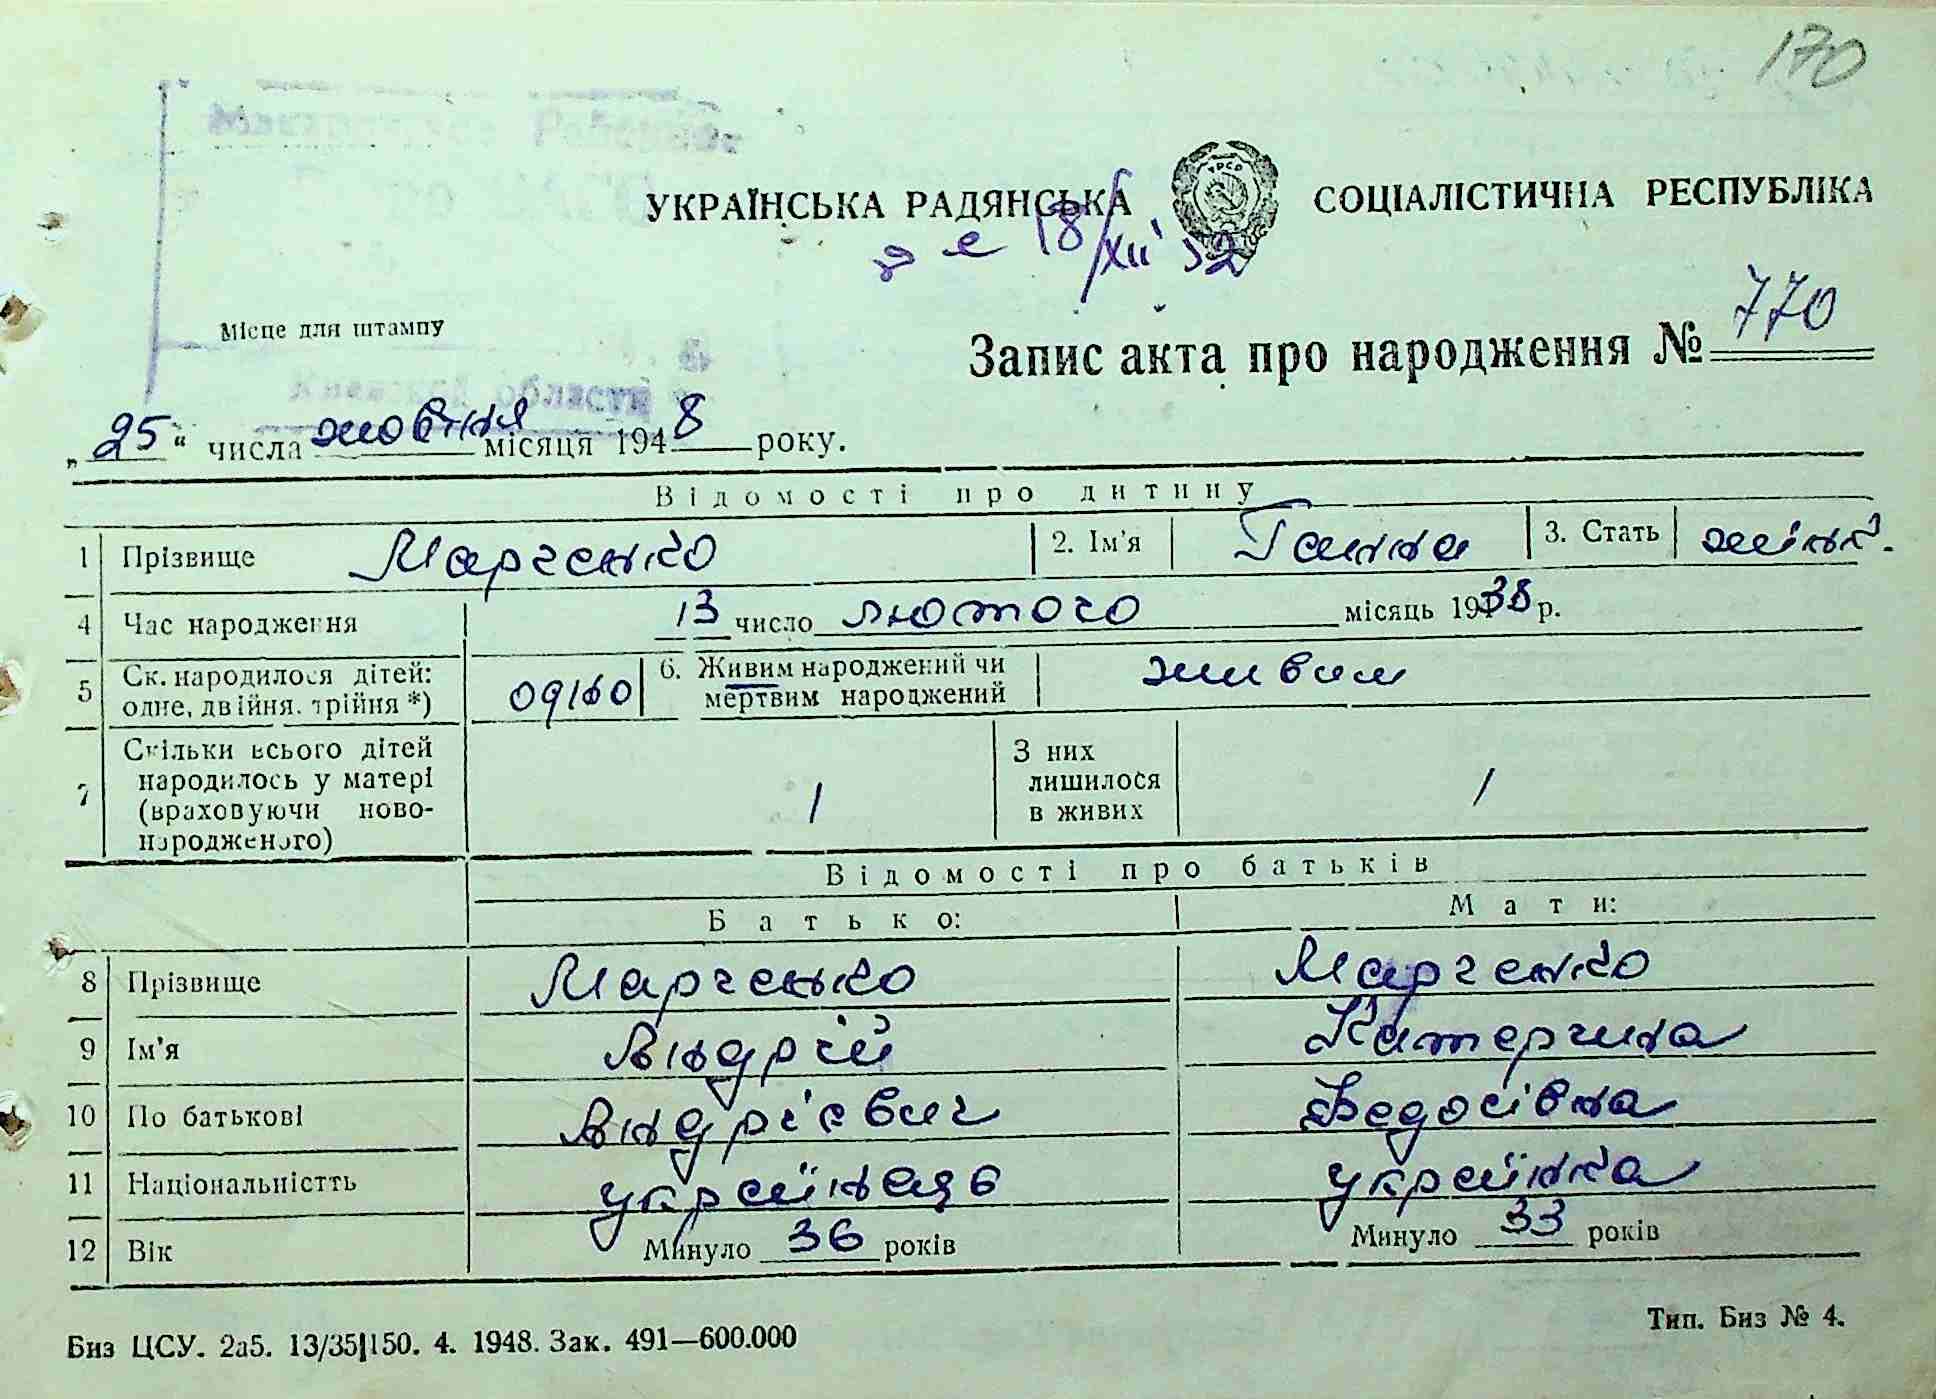 170
УКРАЇНСЬКА РАДЯНСЬКА СОЦІАЛІСТИЧНА РЕСПУБЛІКА
18/XII 52
Місце для штампу
Запис акта про народження № 770
Киевской области
„25“ числа жовтня місяця 1948 року.
Відомості про дитину
1 Прізвище Марченко 2. Ім'я Ганна 3. Стать жіноч.
4 Час народження 13 число лютого місяць 1938 р.
5 Ск. народилося дітей: одне, двійня, трійня *) одно 6. Живим народжений чи мертвим народжений живим
7 Скільки всього дітей народилось у матері (враховуючи новонародженого) 1 З них лишилося в живих 1
Відомості про батьків
Батько: Мати:
8 Прізвище Марченко Марченко
9 Ім'я Андрій Катерина
10 По батькові Андрієвич Федосівна
11 Національністть українець українка
12 Вік Минуло 36 років Минуло 33 років
Биз ЦСУ. 2а5. 13/35|150. 4. 1948. Зак. 491—600.000
Тип. Биз № 4.